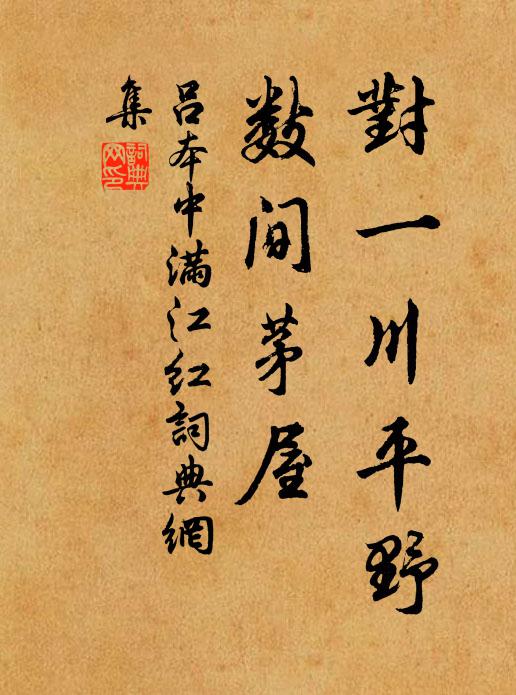 對一川平野
數間茅屋
呂本中滿江红詞典網
集
詞典网印